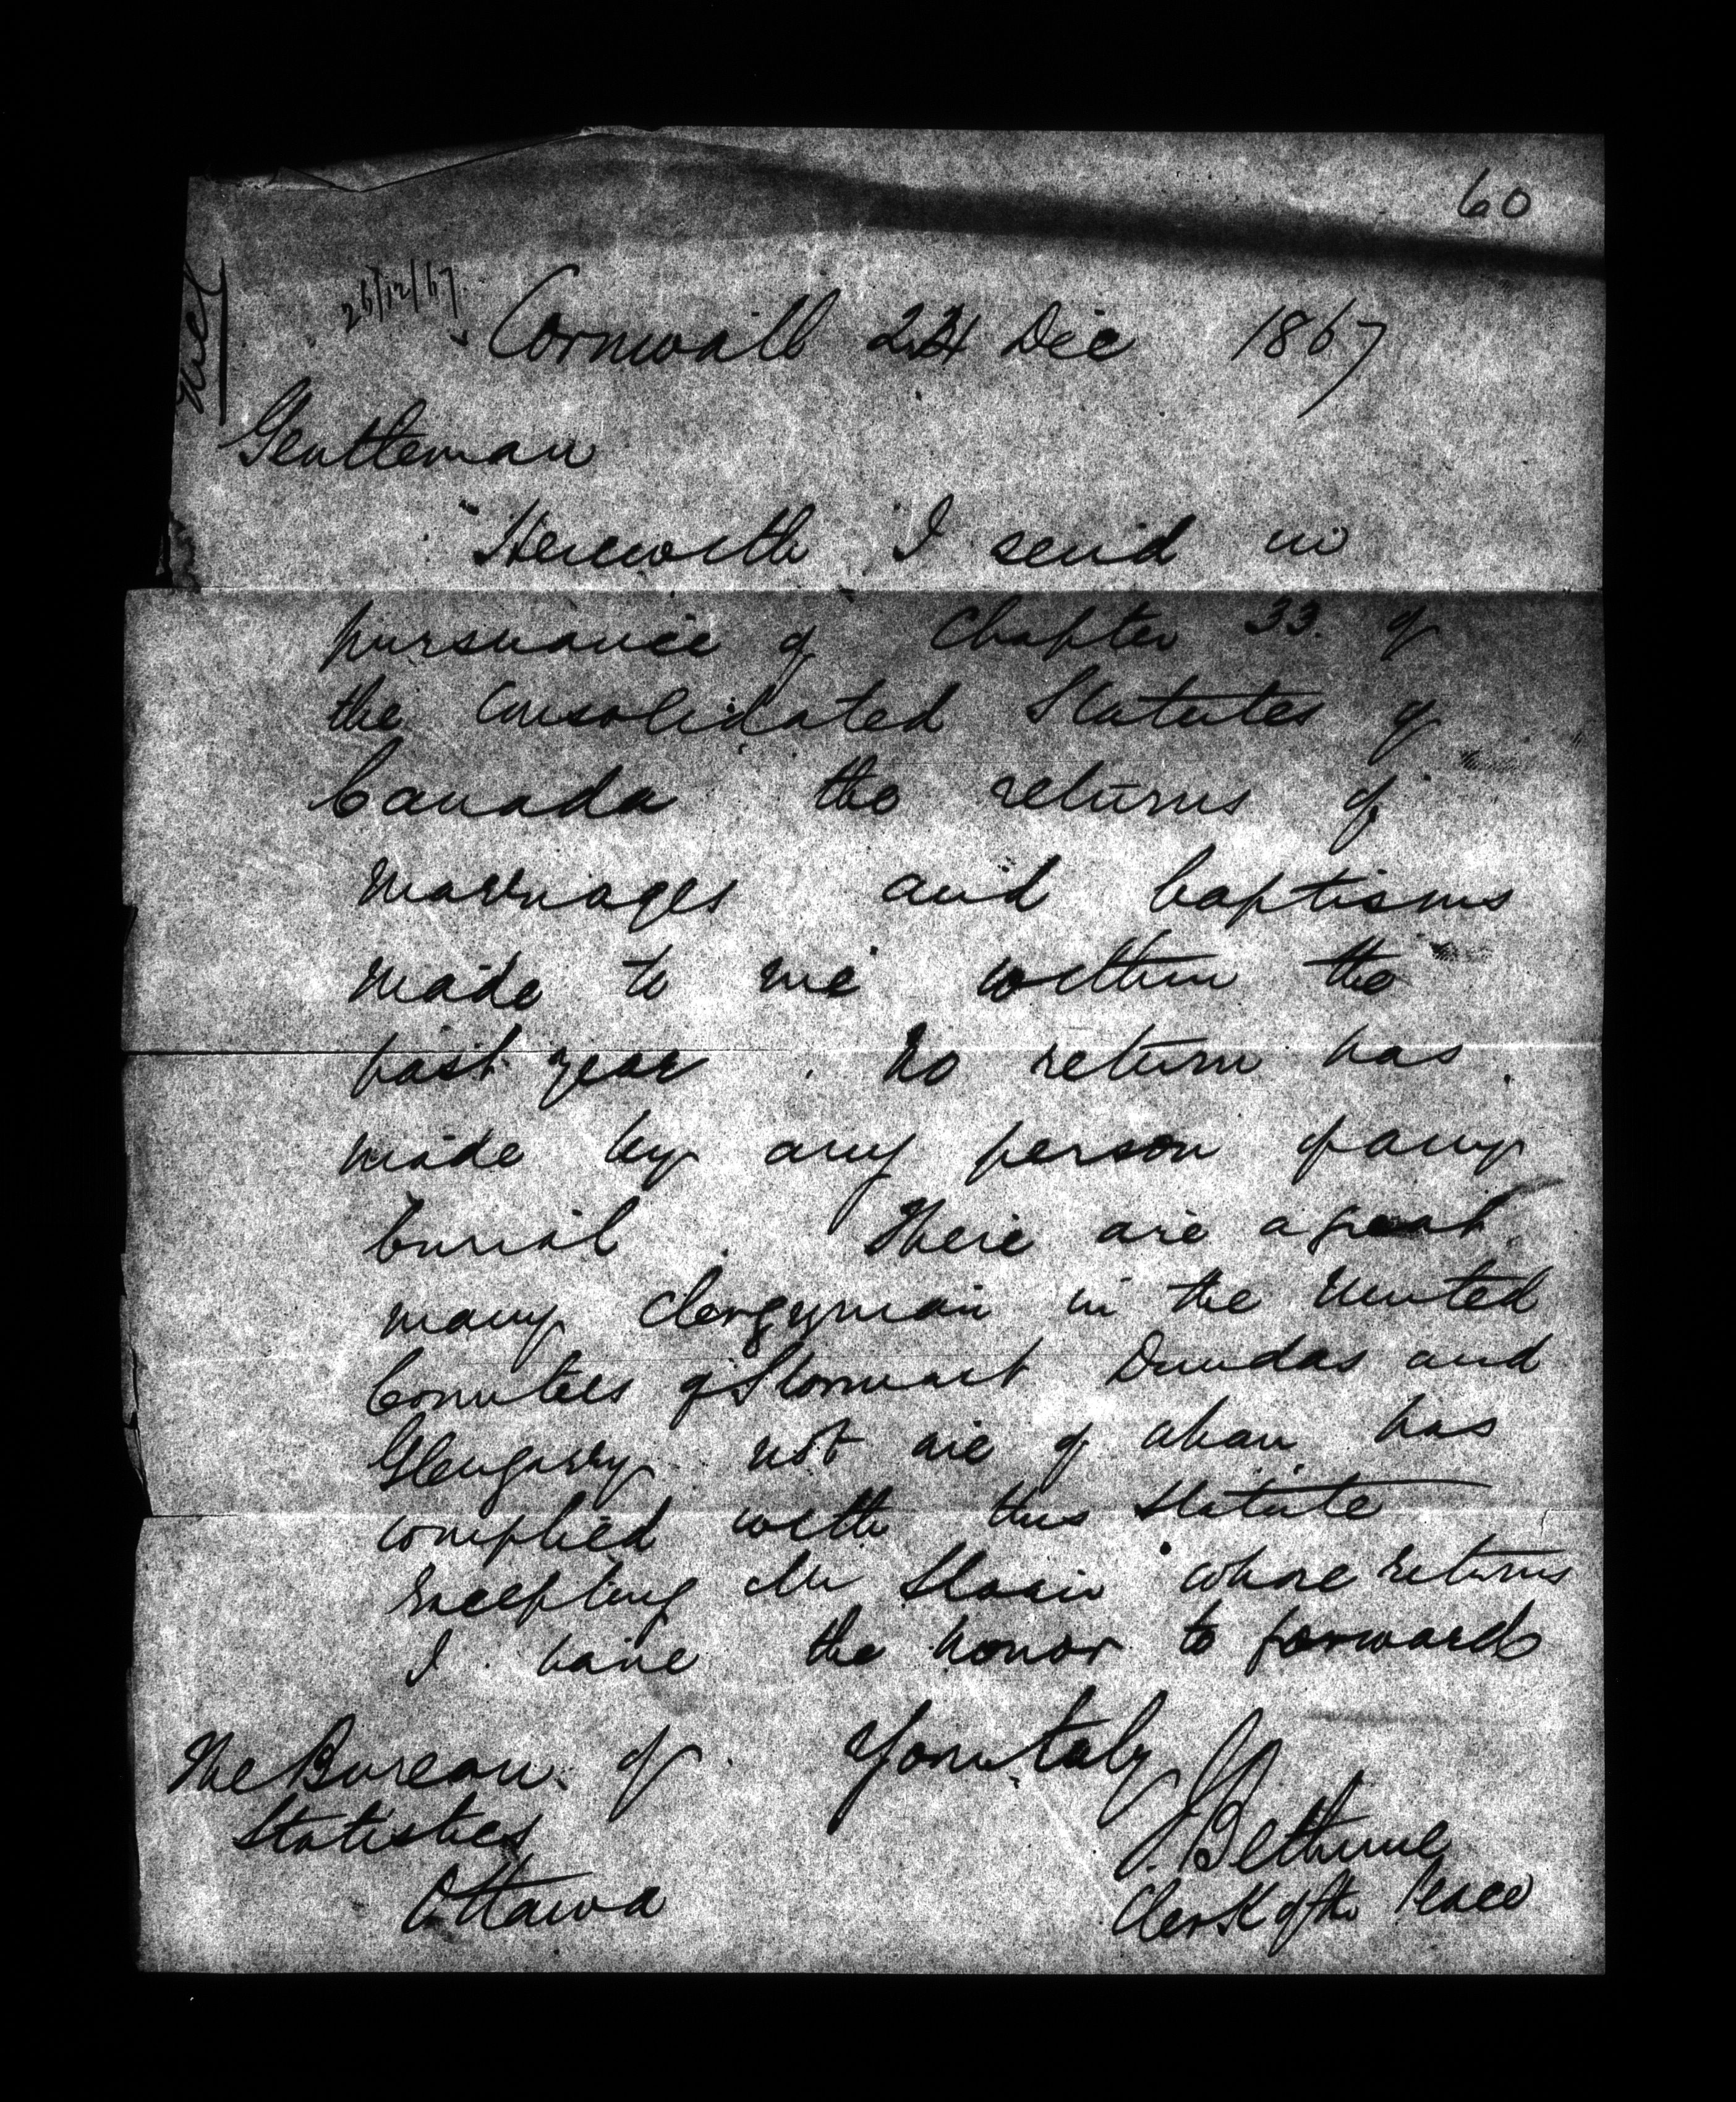 60
26/12/67.
Cornwall 24 Dec 1867
Gentleman
Herewith I send in
pursuance of Chapter 33. of
the Consolidated Statutes of
Canada the returns of
marriages and baptisms
made to me within the
past year. No return has
made by any person of any
burial. There are a great
many Clergyman in the United
Counties of Stormont Dundas and
Glengarry not one of whom has
complied with this Statute
excepting Mr whose returns
I have the honor to forward
Yours truly
J. Bethune
Clerk of the Peace
The Bureau of
Statistics
Ottawa